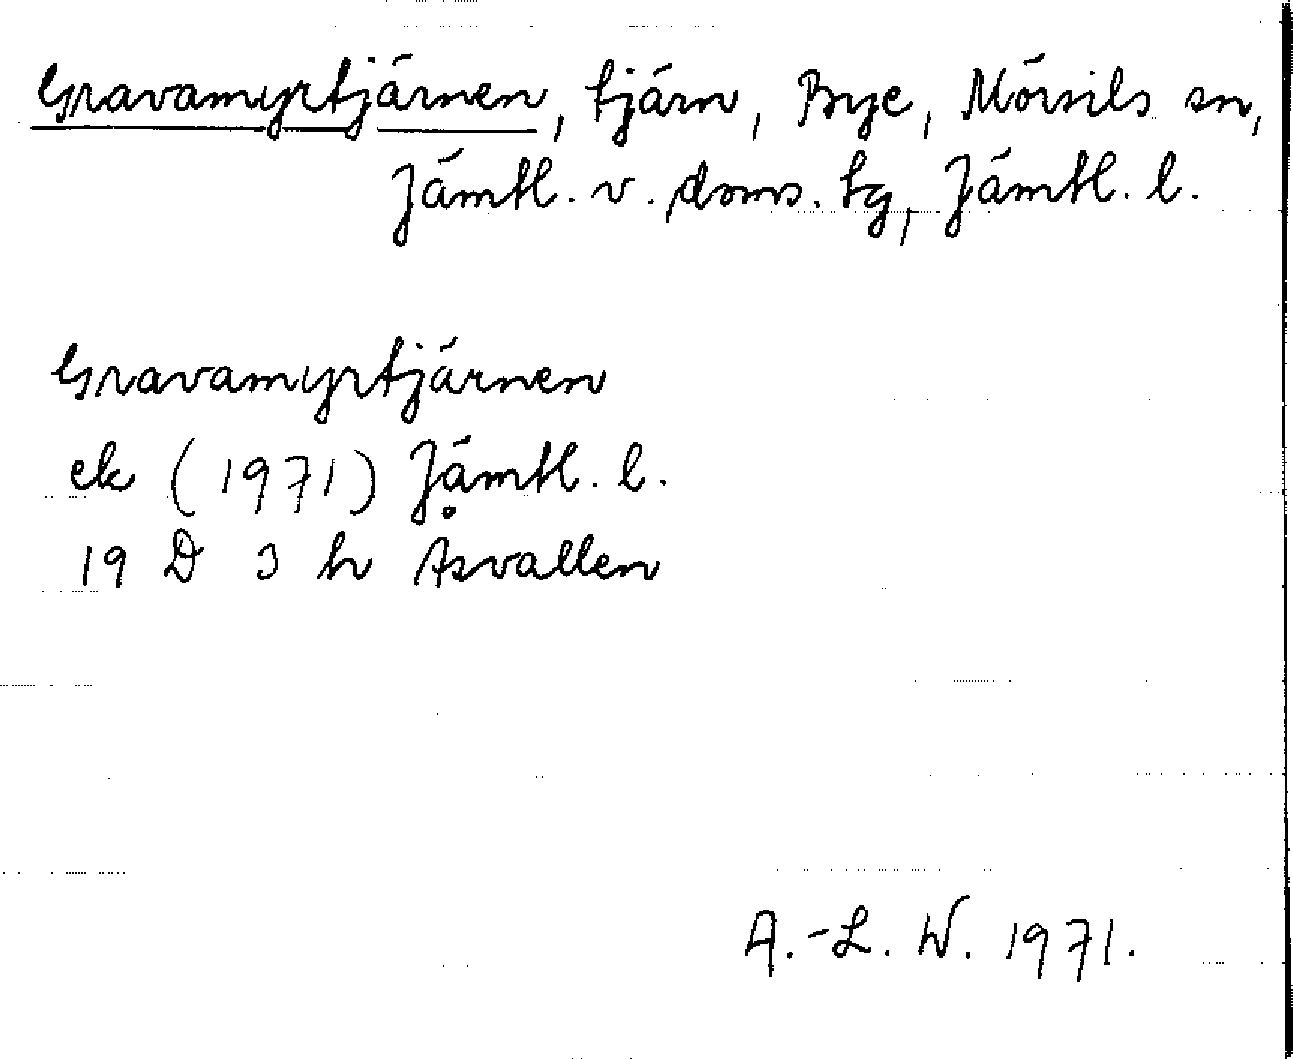 Gravamyrtjärnen, tjärn, Bye, Mörsils sn,
Jämtl. v. doms. tg, Jämtl. l.
Gravamyrtjärnen
ek (1971) Jämtl. l.
19 D 3 h Åsvallen
A.-L. W. 1971.